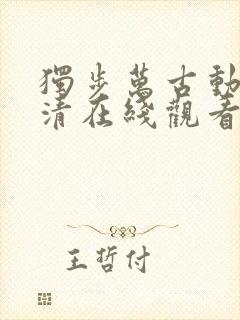 獨步萬古動
清在綫觀看
王哲付